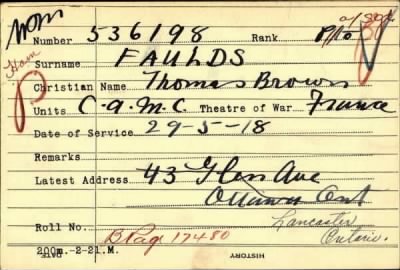 a/Sgt.
Number 536198 Rank Pte
Surname FAULDS
Christian Name Thomas Brown
Units C.A.M.C. Theatre of War France
Date of Service 29-5-18
Remarks
Latest Address 43 Glen Ave
Ottawa Ont
Lancaster
Ontario.
Roll No. B Pag 17480
200m.-2-21.M.
HISTORY
DATE